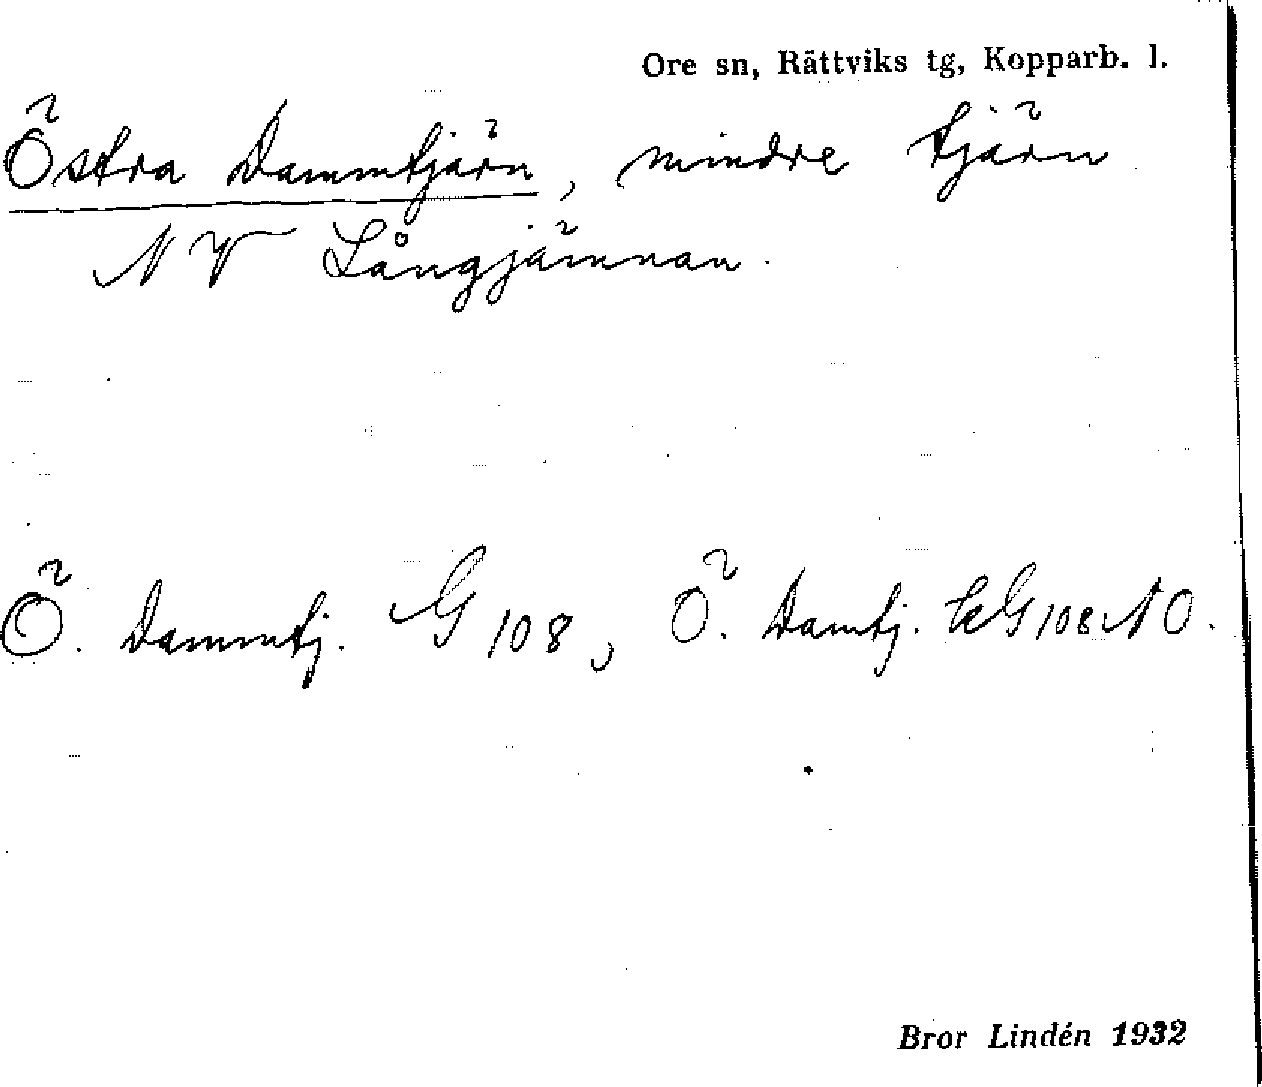 Ore sn, Rättviks tg, Kopparb. l.
Östra Dammtjärn, mindre tjärn
NV Långjämnan.
Ö. Dammtj. G 108, Ö. Damtj. kG 108 NO.
Bror Lindén 1932